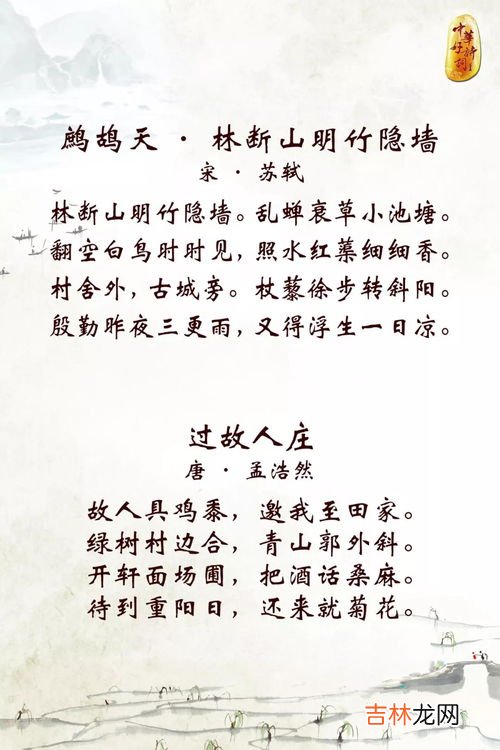 中华好诗词
鹧鸪天 · 林断山明竹隐墙
宋 · 苏轼
林断山明竹隐墙。乱蝉衰草小池塘。
翻空白鸟时时见，照水红蕖细细香。
村舍外，古城旁。杖藜徐步转斜阳。
殷勤昨夜三更雨，又得浮生一日凉。
过故人庄
唐 · 孟浩然
故人具鸡黍，邀我至田家。
绿树村边合，青山郭外斜。
开轩面场圃，把酒话桑麻。
待到重阳日，还来就菊花。
吉林龙网